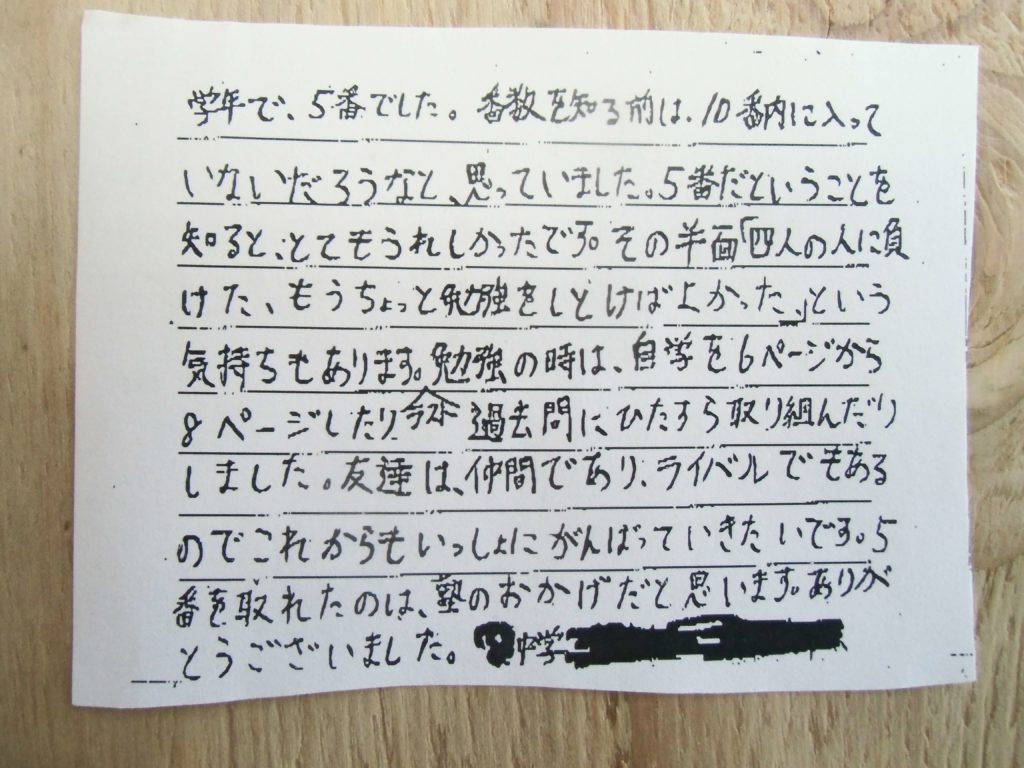 学年で、5番でした。番数を知る前は、10番内に入って
いないだろうなと、思っていました。5番だということを
知ると、とてもうれしかったです。その半面「四人の人に負
けた、もうちょっと勉強をしとけばよかった、」という
気持ちもあります。勉強の時は、自学を6ページから
8ページしたりテスト過去問にひたすら取り組んだり
しました。友達は、仲間であり、ライバルでもある
のでこれからもいっしょにがんばっていきたいです。5
番を取れたのは、塾のおかげだと思います。ありが
とうございました。 中学